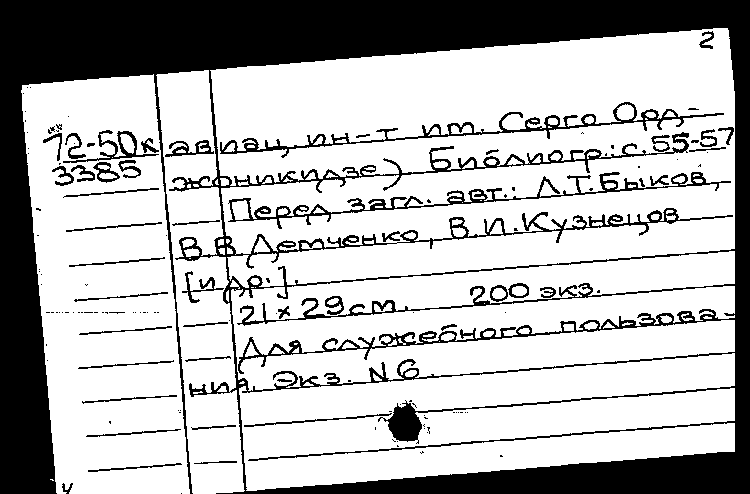 2
72-50к авиац. ин-т им. Серго Орд-
3385 жоникидзе) Библиогр.: с. 55-57
Перед загл. авт.: Л.Т.Быков,
В.В.Демченко, В.И.Кузнецов
[и др.].
21 × 29 см. 200 экз.
Для служебного пользова-
ния. Экз. N 6.